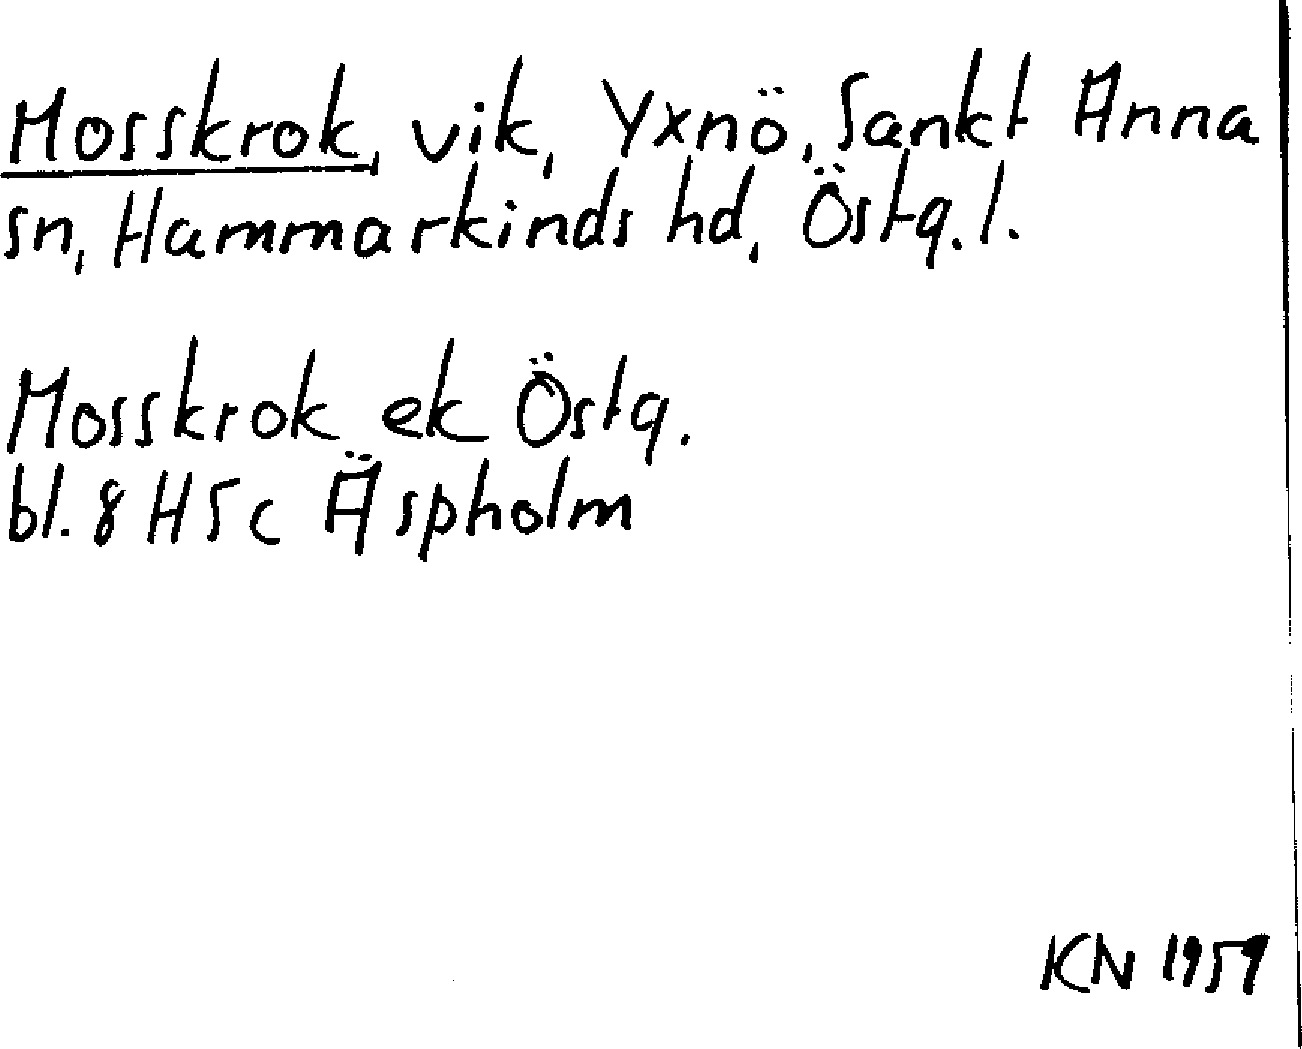 Mosskrok, vik, Yxnö, Sankt Anna
sn, Hammarkinds hd, Östg. l.
Mosskrok ek Östg.
bl. 8 H 5 c Äspholm
KN 1959